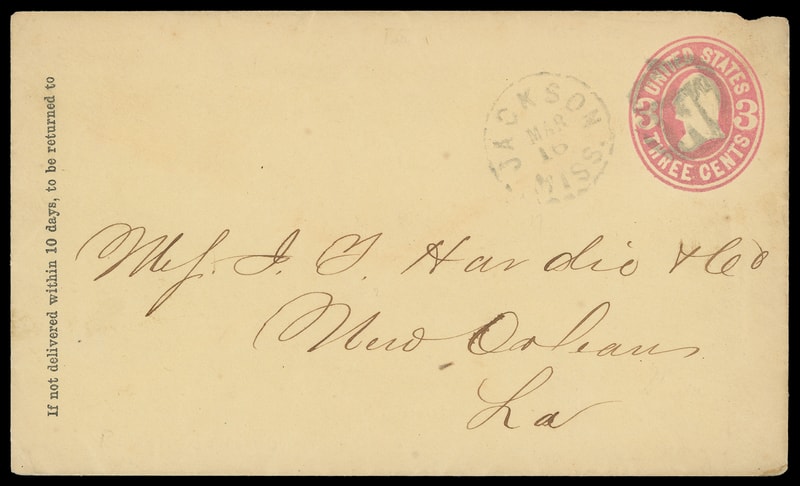 If not delivered within 10 days, to be returned to
JACKSON
MAR
16
MISS.
UNITED STATES
3 3
THREE CENTS
Mess. J. T. Hardie & Co
New Orleans
La